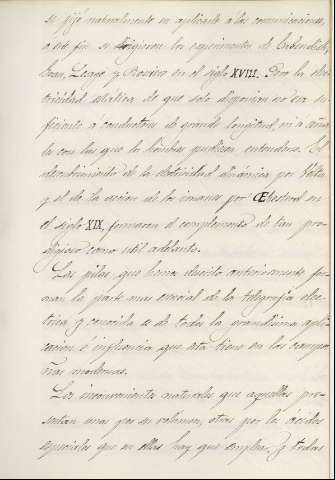 se fijó naturalmente en aplicarlo á las comunicaciones,
á este fin se dirigieron los esperimentos de
Lesage y en el siglo XVIII. Pero la elec-
tricidad estática de que solo disponian no era su-
ficiente á conductores de grande longitud, ni á
las con las que los hombres pudieran entenderse. El
descubrimiento de la electricidad dinámica por Volta
y el de la accion de los imanes por Œhesterd en
el siglo XIX, formaron el complemento de tan pro-
digioso como util adelanto.
Las pilas que hemos descrito anteriormente for-
man la parte mas esencial de la telegrafia elec-
trica y conocida es de todos la grandisima apli-
cacion é influencia que esta tiene en las campa-
ñas modernas.
Los inconvenientes naturales que aquellas pre-
sentan unas por su volúmen, otras por los ácidos
especiales que en ellas hay que emplear, y todas